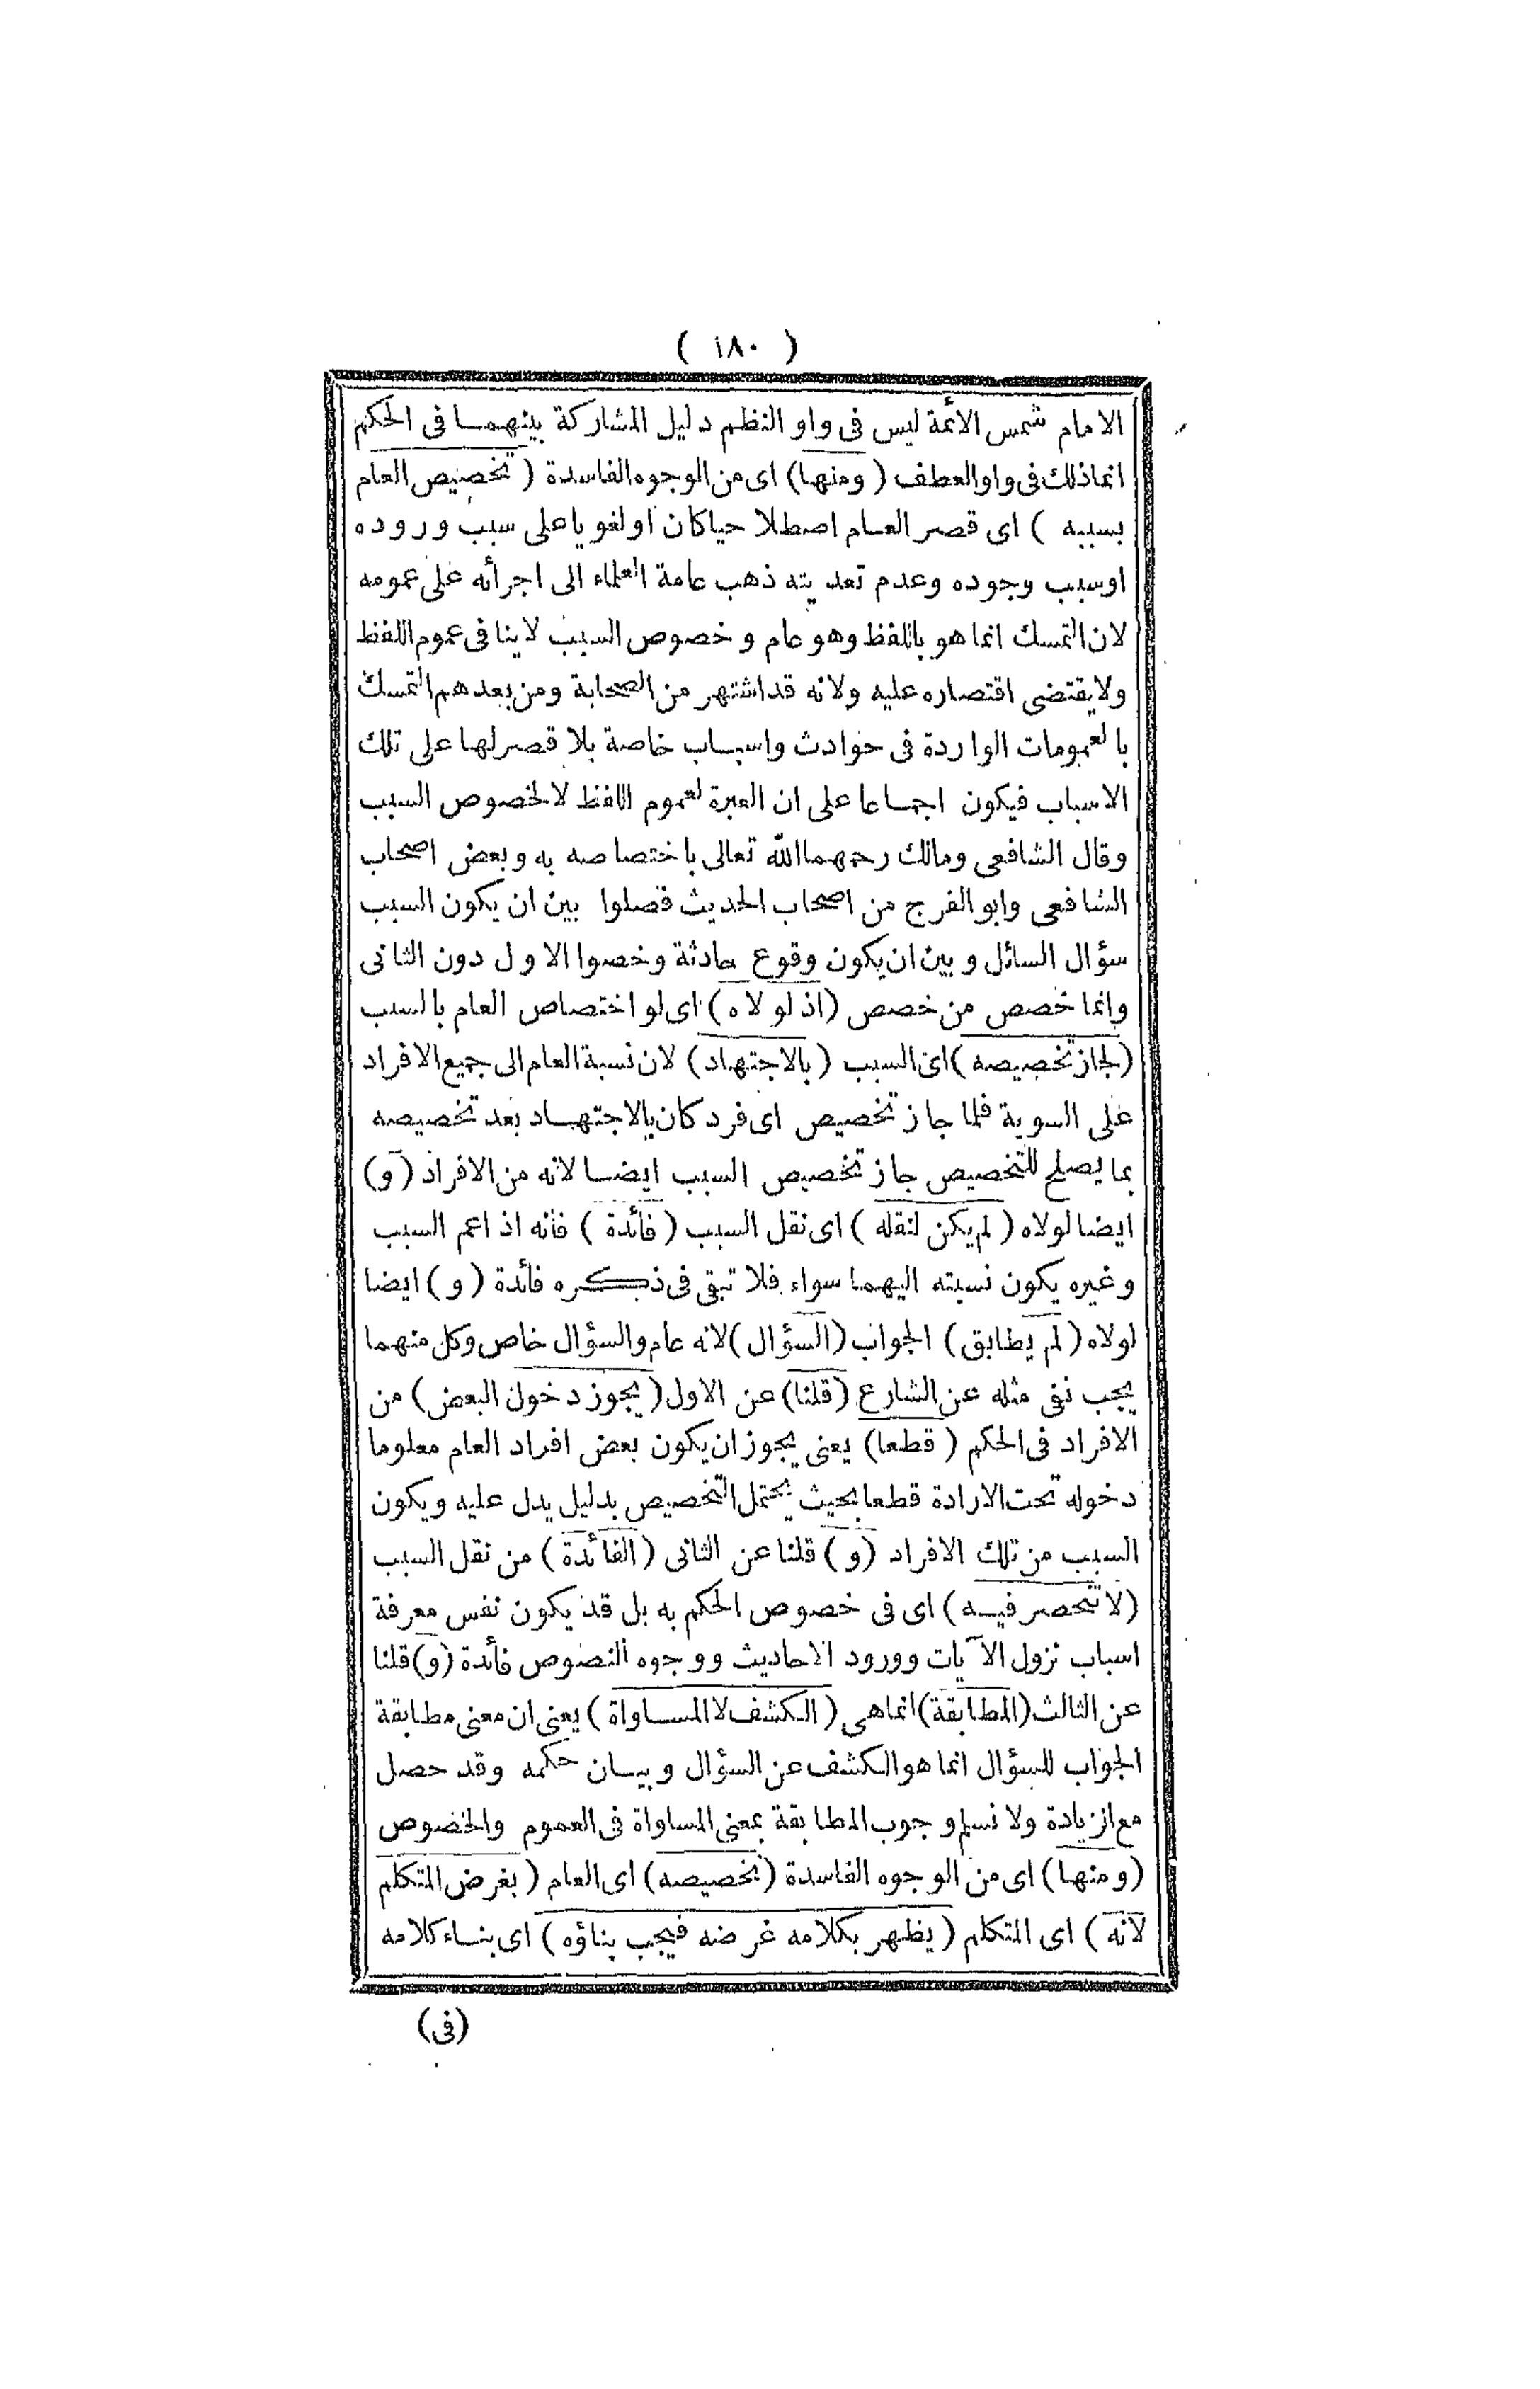 ( ١٨٠ )
الامام شمس الائمة ليس فى واو النظم دليل المشاركة بينهما فى الحكم
انما ذلك فى واو العطف ( ومنها) اى من الوجوه الفاسدة ( تخصيص العام
بسببه ) اى قصر العام اصطلاحيا كان او لغويا على سبب وروده
او سبب وجوده وعدم تعديته ذهب عامة العلماء الى اجرائه على عمومه
لان التمسك انما هو باللفظ وهو عام وخصوص السبب لاينافى عموم اللفظ
ولا يقتضى اقتصاره عليه ولانه قد اشتهر من الصحابة ومن بعدهم التمسك
بالعمومات الواردة فى حوادث واسباب خاصة بلا قصر لها على تلك
الاسباب فيكون اجماعا على ان العبرة لعموم اللفظ لا لخصوص السبب
وقال الشافعى ومالك رحمهما الله تعالى باختصاصه به وبعض اصحاب
الشافعى وابو الفرج من اصحاب الحديث فصلوا بين ان يكون السبب
سؤال السائل وبين ان يكون وقوع حادثة وخصوا الاول دون الثانى
وانما خصص من خصص (اذ لولاه) اى لو اختصاص العام بالسبب
(لجاز تخصيصه) اى السبب (بالاجتهاد) لان نسبة العام الى جميع الافراد
على السوية فلما جاز تخصيص اى فرد كان بالاجتهاد بعد تخصيصه
بما يصلح للتخصيص جاز تخصيص السبب ايضا لانه من الافراد (و)
ايضا لولاه ( لم يكن لنقله ) اى نقل السبب ( فائدة ) فانه اذ اعم السبب
وغيره يكون نسبته اليهما سواء فلا تبقى فى ذكره فائدة ( و ) ايضا
لولاه ( لم يطابق ) الجواب (السؤال) لانه عام والسؤال خاص وكل منهما
يجب نفى مثله عن الشارع (قلنا) عن الاول ( يجوز دخول البعض ) من
الافراد فى الحكم ( قطعا ) يعنى يجوز ان يكون بعض افراد العام معلوما
دخوله تحت الارادة قطعا بحيث يحتمل التخصيص بدليل يدل عليه ويكون
السبب من تلك الافراد (و) قلنا عن الثانى (الفائدة) من نقل السبب
(لا تنحصر فيه ) اى فى خصوص الحكم به بل قد يكون نفس معرفة
اسباب نزول الآيات وورود الاحاديث ووجوه النصوص فائدة (و) قلنا
عن الثالث (المطابقة) انما هى ( الكشف لا المساواة ) يعنى ان معنى مطابقة
الجواب للسؤال انما هو الكشف عن السؤال وبيان حكمه وقد حصل
مع الزيادة ولا نسلم وجوب المطابقة بمعنى المساواة فى العموم والخصوص
(ومنها) اى من الوجوه الفاسدة (تخصيصه) اى العام ( بغرض المتكلم
لانه ) اى المتكلم ( يظهر بكلامه غرضه فيجب بناؤه ) اى بناء كلامه
(فى)